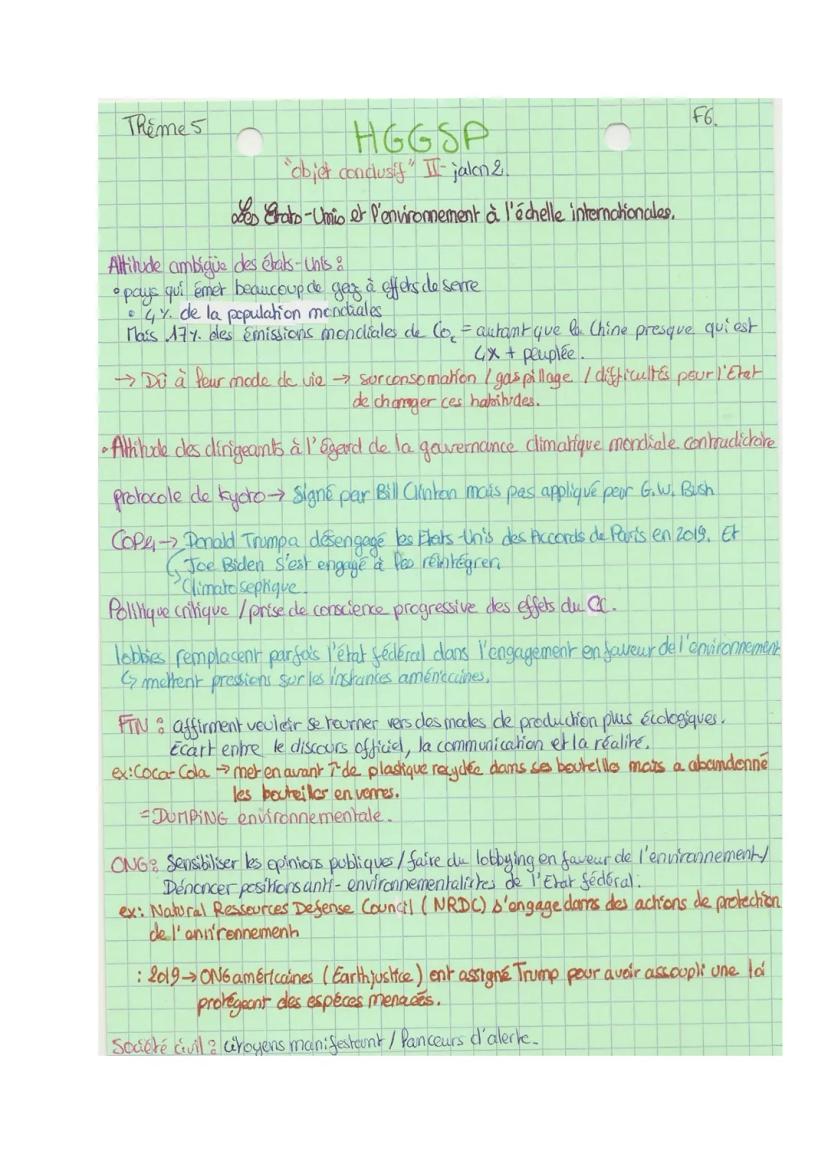 Thème 5
F6.
HGGSP
"objet conclusif" II- jalon 2.
Les États-Unis et l'environnement à l'échelle internationales.
Attitude ambigüe des états-Unis :
• pays qui émet beaucoup de gaz à effets de serre
• 4% de la population mondiales
Mais 17% des émissions mondiales de Co₂ = autant que la Chine presque qui est
4x + peuplée.
→ Dû à leur mode de vie → surconsomation / gaspillage / difficultés pour l'Etat
de changer ces habitudes.
• Attitude des dirigeants à l'égard de la gouvernance climatique mondiale contradictoire
protocole de kyoto → Signé par Bill Clinton mais pas appliqué par G.W. Bush
COP21 → Donald Trump a désengagé les Etats-Unis des Accords de Paris en 2019. Et
Joe Biden s'est engagé à les réintégrer.
Climatoseptique.
Politique critique / prise de conscience progressive des effets du CC.
lobbies remplacent parfois l'état fédéral dans l'engagement en faveur de l'environnement
↳ mettent pressions sur les instances américaines.
FTN : affirment vouloir se tourner vers des modes de production plus écologiques.
Ecart entre le discours officiel, la communication et la réalité.
ex: Coca-Cola → met en avant ↑ de plastique recyclée dans ses bouteilles mais a abandonné
les bouteilles en verres.
= DUMPING environnementale.
ONG : Sensibiliser les opinions publiques / faire du lobbying en faveur de l'environnement /
Dénoncer positions anti-environnementalistes de l'Etat fédéral.
ex: Natural Ressources Defense Council (NRDC) s'engage dans des actions de protection
de l'environnement
: 2019 → ONG américaines (Earthjustice) ont assigné Trump pour avoir assoupli une loi
protégeant des espèces menacées.
Société civil : citoyens manifestant / lanceurs d'alerte.